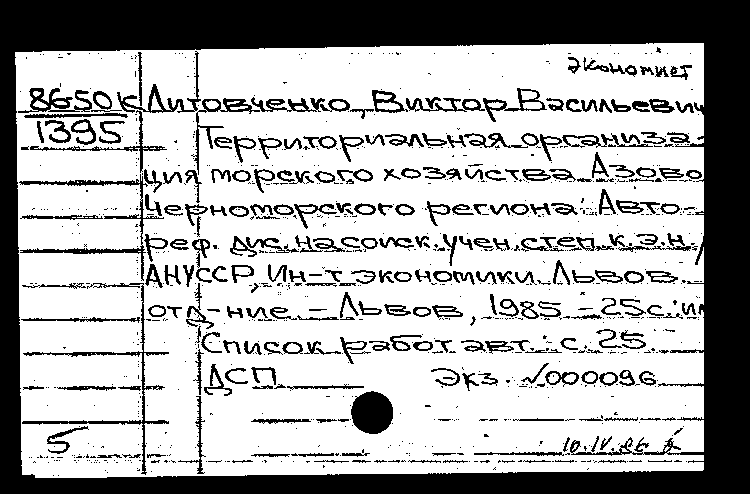 экономист
8650к Литовченко, Виктор Васильевич
1395 Территориальная организа-
ция морского хозяйства Азово
Черноморского региона: Авто-
реф. дис. на соиск. учен. степ. к.э.н /
АН УССР, Ин-т экономики Львов.
отд-ние. – Львов, 1985 – 25с.: ил
Список работ авт.: с. 25.
ДСП Экз. √000096
5 10.IV.86